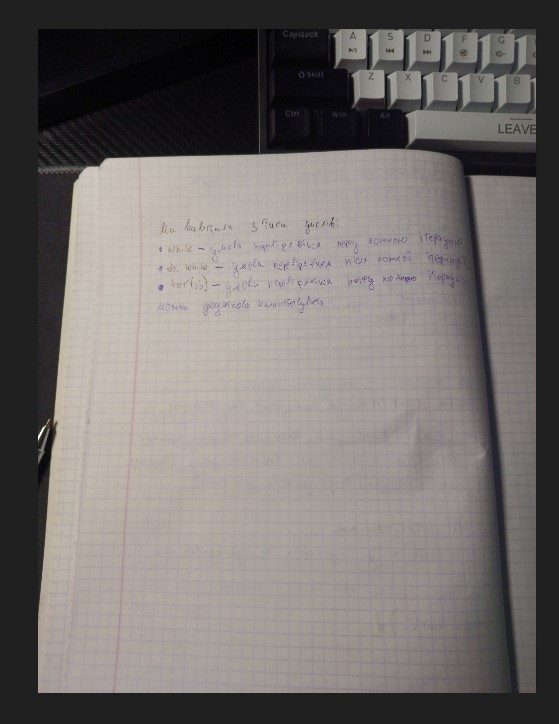 Capslock A S D F G
Shift Z X C V B
Ctrl Win Alt LEAVE
Ми вивчили 3 типи циклів:
• while – умова перевіряється перед кожною ітерацією
• do while – умова перевіряється після кожної ітерації
• for(;;) – умова перевіряється перед кожною ітерацією
можна додатково налаштовувати